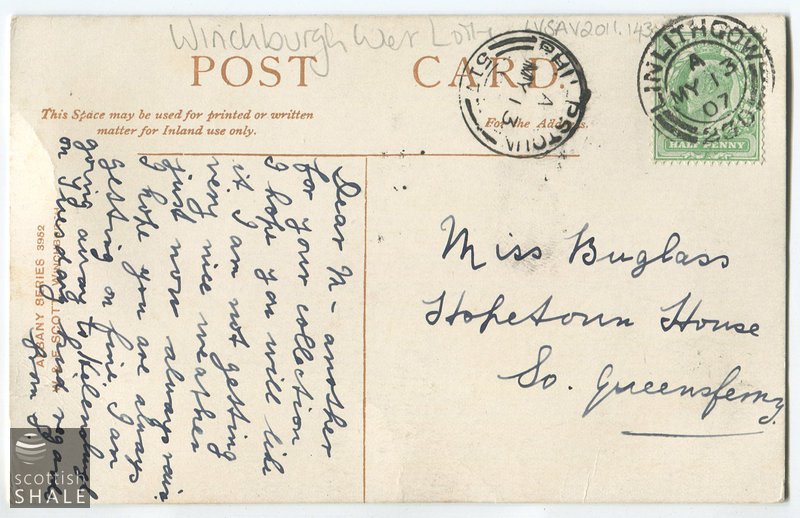 Winchburgh West Lothian LVSAV2011.143
POST CARD.
This Space may be used for printed or written
matter for Inland use only.
For the Address
PHILPSTOUN
A
MY 13
LINLITHGOW
A 3
MY 13
07
HALF PENNY
Dear M - another
for your collection
I hope you will like
it I am not getting
very nice weather
just now always rain
I hope you are always
getting on fine I am
going away to
on Tuesday kind regards
from
ALBANY SERIES 3952
Miss Buglass
Hopetoun House
So. Queensferry
scottish
SHALE